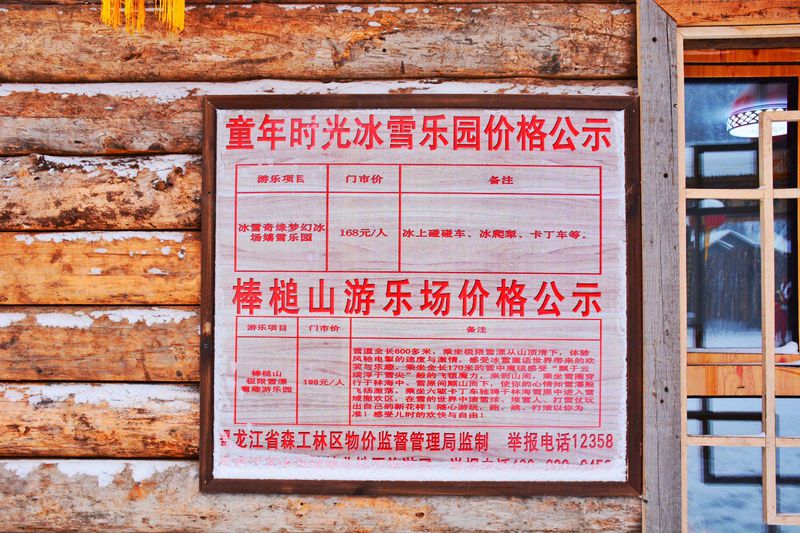 童年时光冰雪乐园价格公示
游乐项目 门市价 备注
冰雪奇缘梦幻冰
场嬉雪乐园
168元/人 冰上碰碰车、冰爬犁、卡丁车等。
棒槌山游乐场价格公示
游乐项目 门市价 备注
棒槌山
极限雪漂
雪趣游乐园
198元/人
雪道全长600多米，乘坐极限雪漂从山顶滑下，体验
风驰电掣的速度与激情，感受冰雪童话世界带来的欢
笑与乐趣。乘坐全长170米的雪中魔毯感受“飘于云
端浮于雪尖”般的飞毯魔力，来到山间，乘坐雪圈穿
行于林海中、雪原间顺山而下，使你的心情如雪瀑般
飞扬激荡。乘坐六驱卡丁车驰骋于林海雪原中进入雪
域撒欢区，在雪的世界中滚雪球、堆雪人、打雪仗玩
出自己的新花样！随心游玩，跑、跳、打滚以你为
准！感受儿时的欢快与自由！
黑龙江省森工林区物价监督管理局监制 举报电话12358